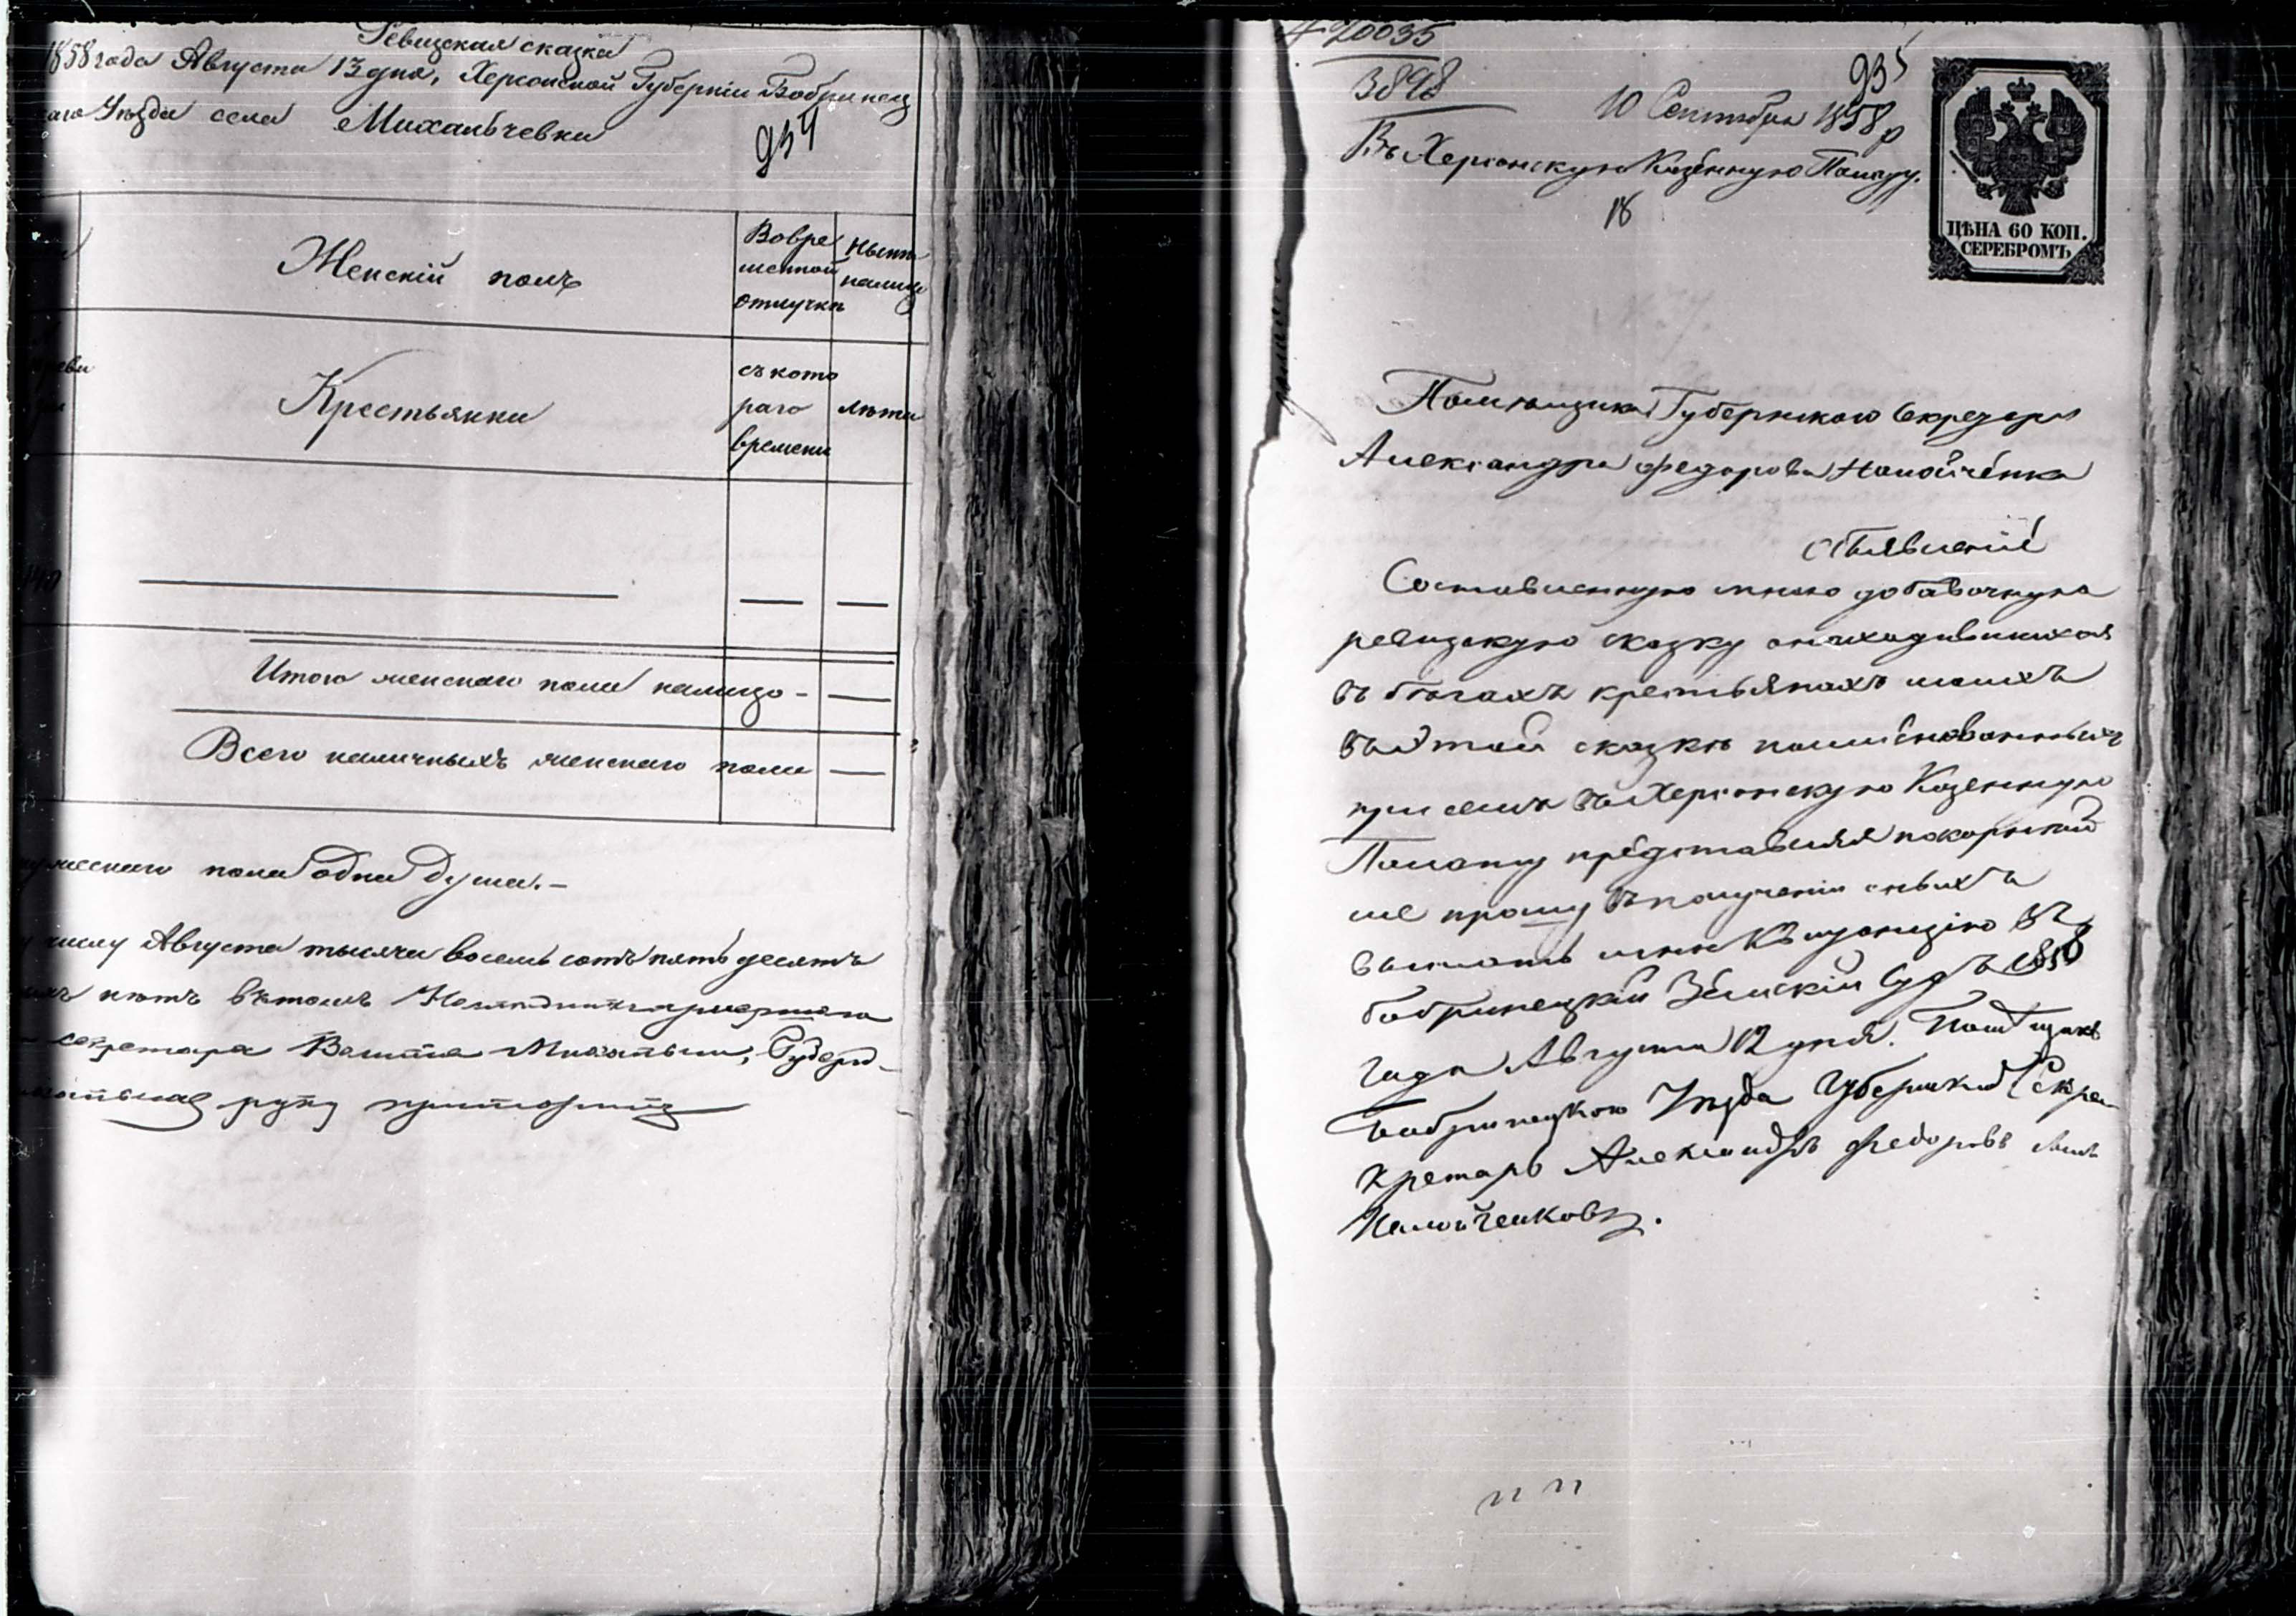 Ревизская сказка
1858 года Августа 13 дня, Херсонской Губернiи Бобринец
каго Уѣзда села Михальчевки
954
Женскiй полъ
Вовре
менной
отлучкѣ
Нынѣ
налицо
Крестьянки
съ кото
раго
времени
лѣта
Итого женскаго пола налицо -
Всего наличныхъ женскаго пола
пола одна душа.-
числу Августа тысяча восемь сотъ пятьдесятъ
лѣтъ въ томъ
секретара
руку приложилъ
20035
3898
935
10 Сентября 1858
Въ Херсонскую Казенную Палату.
18
ЦѢНА 60 КОП.
СЕРЕБРОМЪ
Помѣщика Губернскаго Секретаря
Александра Федорова
Объявленiе
Составленную мною добавочную
ревизскую сказку о находившихся
въ бѣгахъ крестьянахъ моихъ
въ этой сказкѣ поименованныхъ
при семъ въ Херсонскую Казенную
Палату представляя покорнѣй
ше прошу въ полученiи оныхъ
выслать мнѣ Квитанцiю въ
бобринецкiй Земскiй Судъ 1858
года Августа 12 дня. Помѣщикъ
Бобринецкаго Уѣзда Губернскiй Секре-
кретарь Александръ Федоровъ сынъ